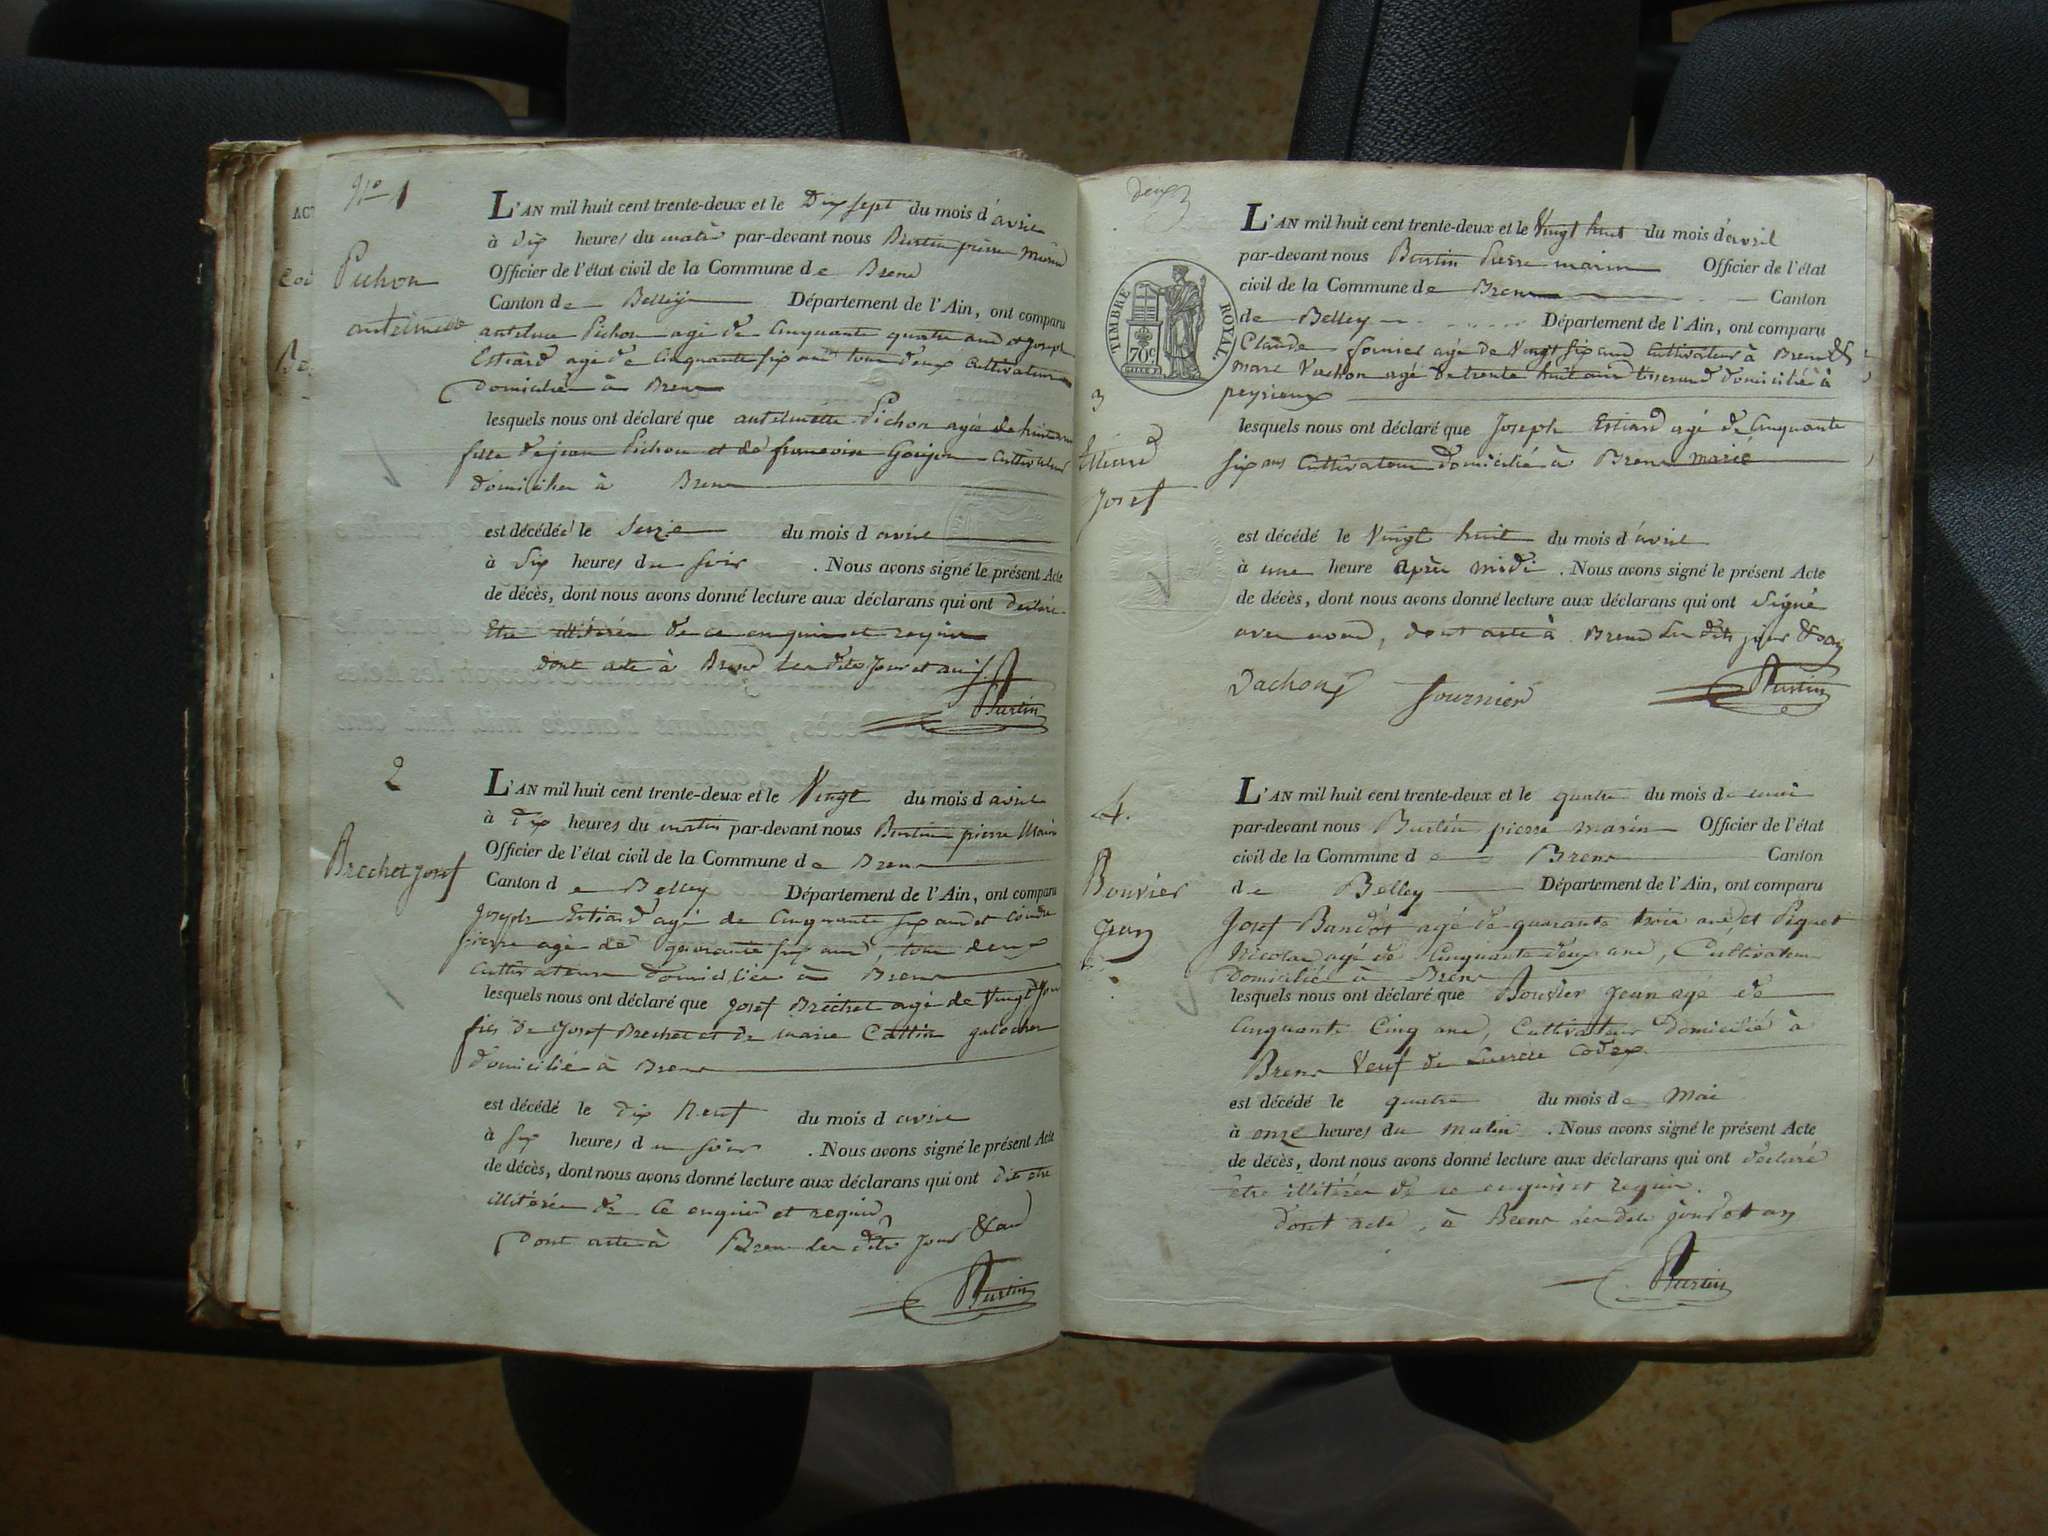 N° 1
Pichon
antelmette
L'AN mil huit cent trente-deux et le Dix sept du mois d'avril
à Dix heures du matin par-devant nous Burtin pierre Marin
Officier de l'état civil de la Commune de Brens
Canton de Belley Département de l'Ain, ont comparu
antelme Pichon agé de Cinquante quatre ans et Joseph
Estiard agé de Cinquante six ans tous deux Cultivateurs
Domiciliés à Brens
lesquels nous ont déclaré que antelmette Pichon agée de huit ans
fille de jean Pichon et de francoise Goujon Cultivateurs
domicilier à Brens
est décédée le Seize du mois d avril
à Six heures du soir . Nous avons signé le présent Acte
de décès, dont nous avons donné lecture aux déclarans qui ont déclaré
Etre illitérés de ce enquis et requis
dont acte à Brens les dits Jour et an
Burtin
2
Brechet Josef
L'AN mil huit cent trente-deux et le Vingt du mois d avril
à Dix heures du matin par-devant nous Burtin pierre Marin
Officier de l'état civil de la Commune de Brens
Canton de Belley Département de l'Ain, ont comparu
Joseph Estiard agé de Cinquante six ans et
pierre agé de quarante six ans, tous deux
Cultivateurs domiciliés à Brens
lesquels nous ont déclaré que Josef Brechet agé de Vingt Jours
fils de Josef Brechet et de marie Cattin galocher
domicilié à Brens
est décédé le dix neuf du mois d avril
à six heures du soir . Nous avons signé le présent Acte
de décès, dont nous avons donné lecture aux déclarans qui ont dit etre
illitérés de Ce enquis et requis
Dont acte à Brens les dits Jour & an
Burtin
deux
3
Estiard
Josef
TIMBRE ROYAL
70c
L'AN mil huit cent trente-deux et le Vingt huit du mois d'avril
par-devant nous Burtin Pierre marin Officier de l'état
civil de la Commune de Brens Canton
de Belley Département de l'Ain, ont comparu
Claude fornier agé de Vingt six ans Cultivateur à Brens &
marc Vachon agé de trente huit ans tisserand domicilié à
peyrieux
lesquels nous ont déclaré que Joseph Estiard agé de Cinquante
six ans Cultivateur domicilié à Brens marié
est décédé le Vingt huit du mois d'avril
à une heure après midi . Nous avons signé le présent Acte
de décès, dont nous avons donné lecture aux déclarans qui ont Signé
avec nous, dont acte à Brens les dits jour & an
Vachon fournier Burtin
4.
Bouvier
Jean
L'AN mil huit cent trente-deux et le quatre du mois de mai
par-devant nous Burtin pierre marin Officier de l'état
civil de la Commune de Brens Canton
de Belley Département de l'Ain, ont comparu
Josef Bandot agé de quarante trois ans, et Piquet
Nicolas agé de Cinquante deux ans, Cultivateurs
Domiciliés à Brens
lesquels nous ont déclaré que Bouvier Jean agé de
Cinquante Cinq ans, Cultivateur domicilié à
Brens Veuf de Lucrèce Codex
est décédé le quatre du mois de Mai
à onze heures du matin . Nous avons signé le présent Acte
de décès, dont nous avons donné lecture aux déclarans qui ont déclaré
être illitérés de ce enquis et requis.
Dont acte, à Brens les dits jour et an
Burtin